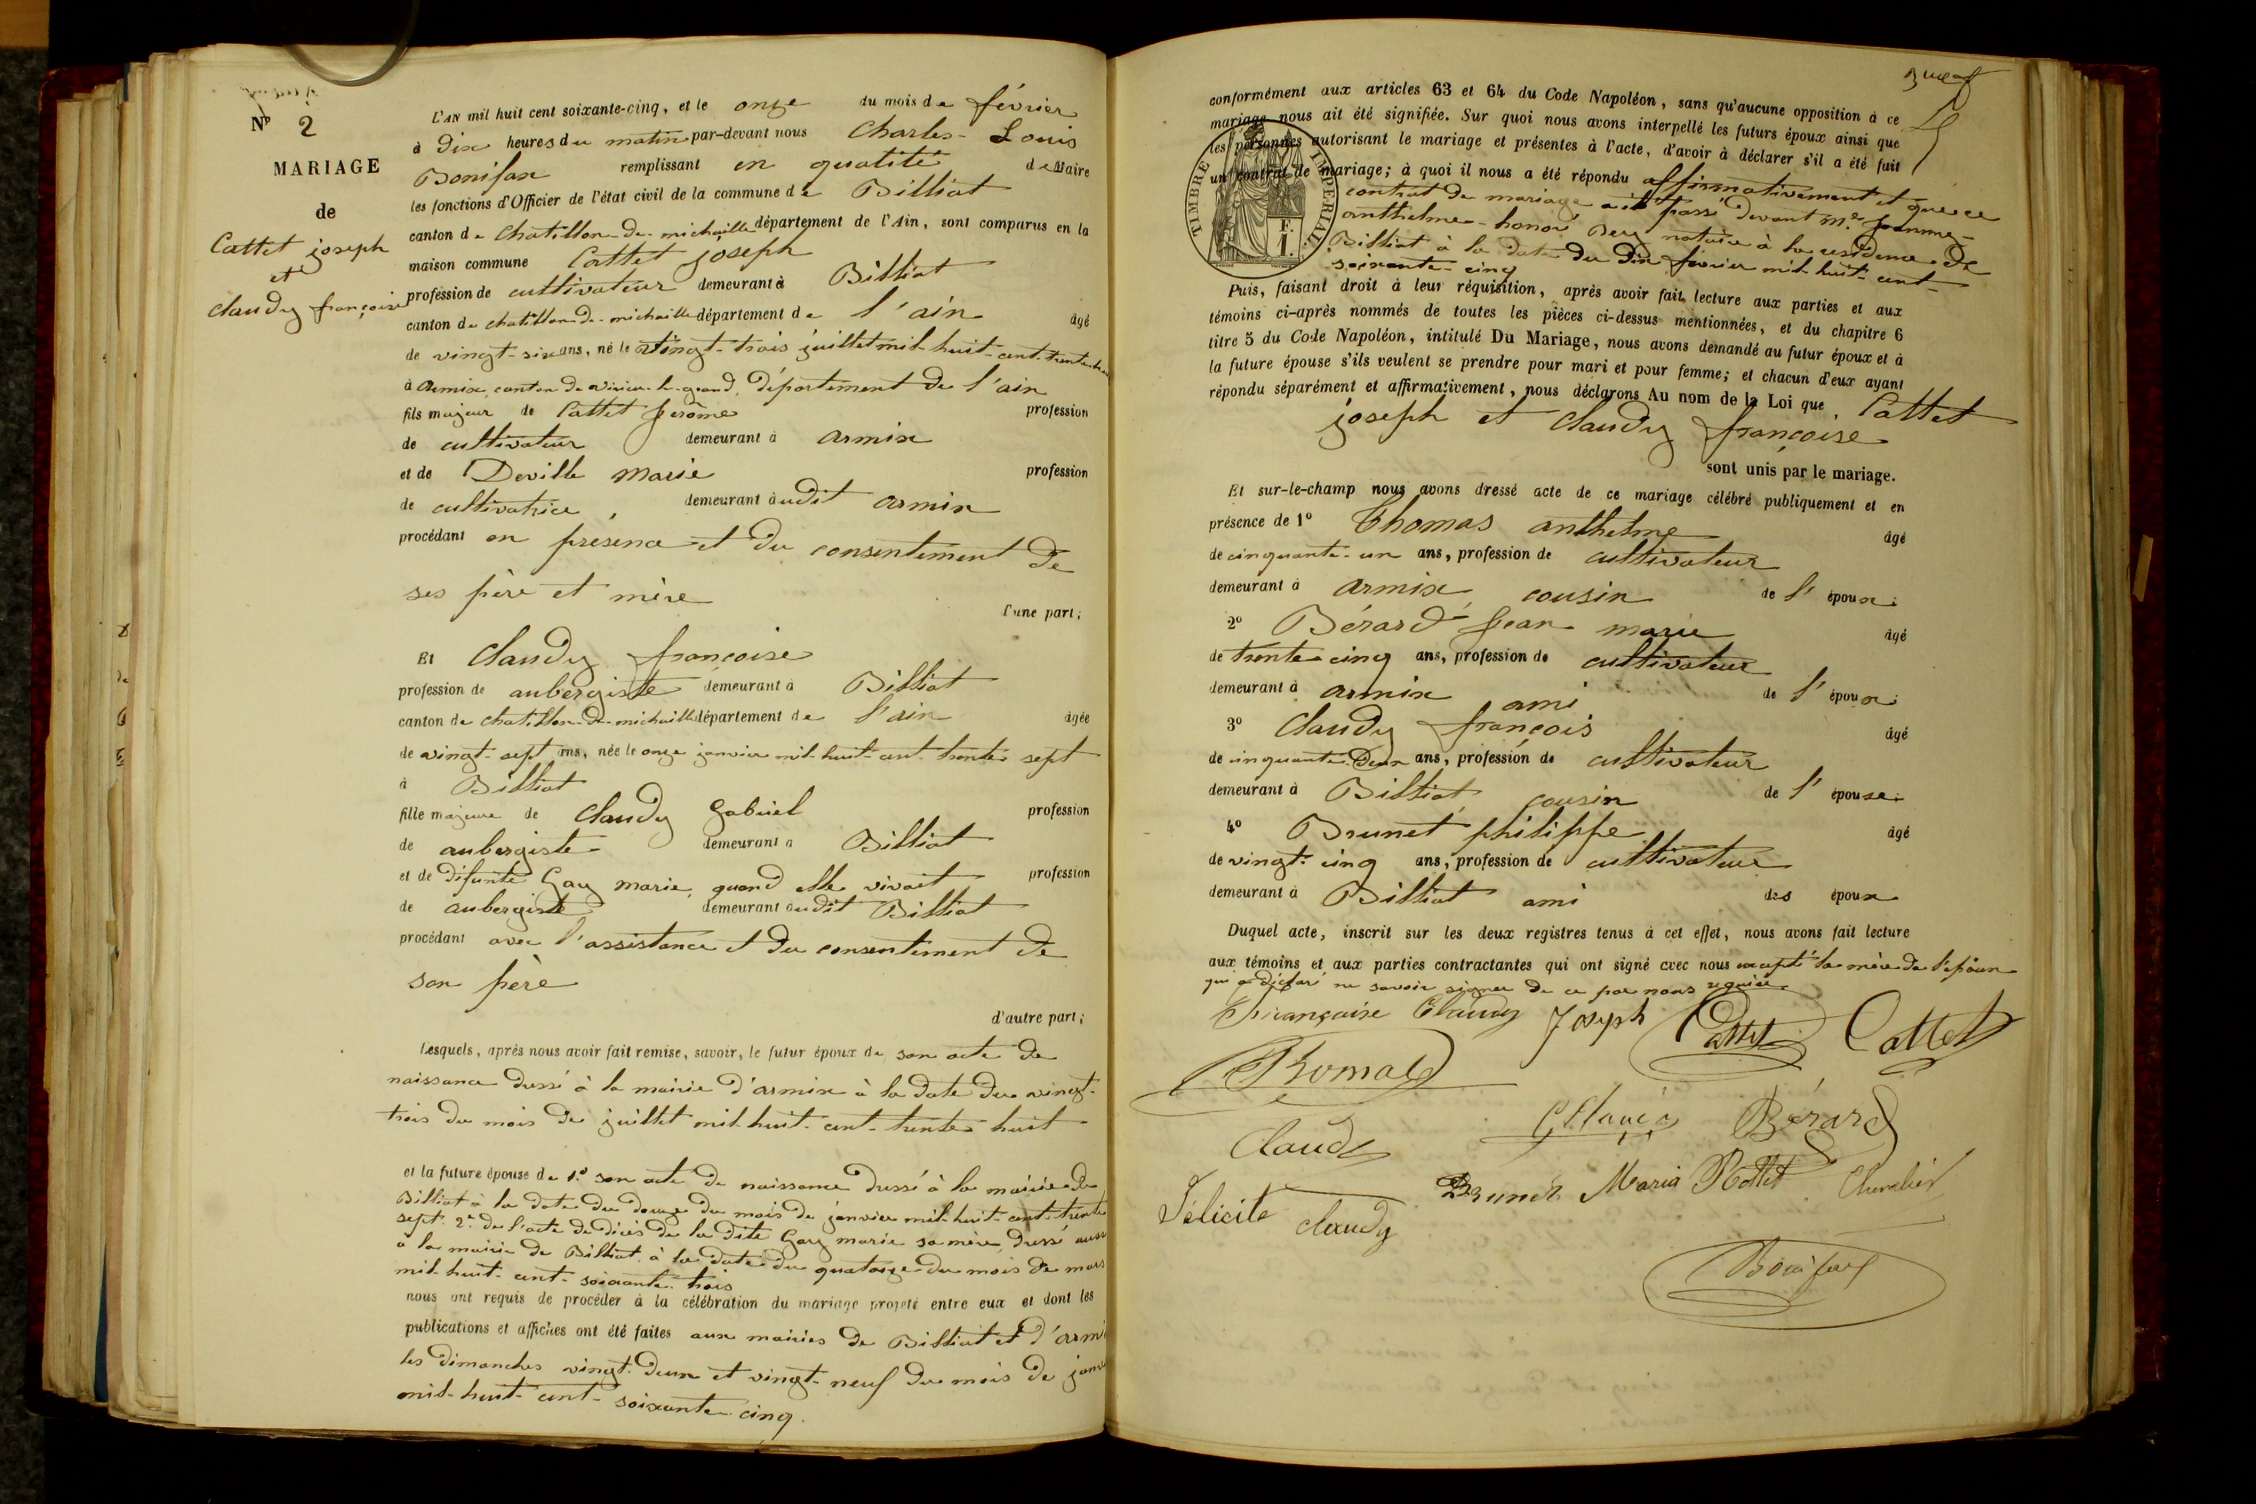 N° 2
MARIAGE
de
Cattet joseph
et
Claudy françoise
L'AN mil huit cent soixante-cinq, et le onze du mois de février
à dix heures du matin par-devant nous Charles-Louis
Bonifax remplissant en qualité de Maire
les fonctions d'Officier de l'état civil de la commune de Billiat
canton de Chatillon-de-michaille département de l'Ain, sont comparus en la
maison commune Cattet joseph
profession de cultivateur demeurant à Billiat
canton de chatillon-de-michaille département de l'ain âgé
de vingt-six ans, né le vingt-trois juillet mil-huit-cent-trente-huit
à Armix, canton de virieu-le-grand, département de l'ain
fils majeur de Cattet jerôme profession
de cultivateur demeurant à armix
et de Deville marie profession
de cultivatrice, demeurant audit armix
procédant en présence et du consentement de
ses père et mère
d'une part;
Et Claudy françoise
profession de aubergiste demeurant à Billiat
canton de chatillon-de-michaille département de l'ain âgée
de vingt-sept ans, née le onze janvier mil-huit-cent-trente sept
à Billiat
fille majeure de Claudy gabriel profession
de aubergiste demeurant à Billiat
et de défunte Gay marie, quand elle vivait profession
de aubergiste demeurant audit Billiat
procédant avec l'assistance et du consentement de
son père
d'autre part;
Lesquels, après nous avoir fait remise, savoir, le futur époux de son acte de
naissance dressé à la mairie d'armix à la date du vingt-
trois du mois de juillet mil-huit-cent-trente huit
et la future épouse de 1.° son acte de naissance dressé à la mairie de
Billiat à la date du douze du mois de janvier mil-huit-cent-trente
sept. 2.° de l'acte de décès de la dite Gay marie sa mère, dressé aussi
à la mairie de Billiat à la date du quatorze du mois de mars
mil-huit-cent-soixante-trois
nous ont requis de procéder à la célébration du mariage projeté entre eux et dont les
publications et affiches ont été faites aux mairies de Billiat et d'armi
les dimanches vingt-deux et vingt-neuf du mois de janv
mil-huit-cent-soixante-cinq.
conformément aux articles 63 et 64 du Code Napoléon, sans qu'aucune opposition à ce
mariage nous ait été signifiée. Sur quoi nous avons interpellé les futurs époux ainsi que
les personnes autorisant le mariage et présentes à l'acte, d'avoir à déclarer s'il a été fait
un contrat de mariage; à quoi il nous a été répondu affirmativement et que ce
contrat de mariage a été passé devant m.e jomme-
anthelme-honoré Dey notaire à la résidence de
Billiat à la date du dix février mil-huit-cent-
soixante-cinq
TIMBRE IMPÉRIAL
F.
1.
Puis, faisant droit à leur réquisition, après avoir fait lecture aux parties et aux
témoins ci-après nommés de toutes les pièces ci-dessus mentionnées, et du chapitre 6
titre 5 du Code Napoléon, intitulé Du Mariage, nous avons demandé au futur époux et à
la future épouse s'ils veulent se prendre pour mari et pour femme; et chacun d'eux ayant
répondu séparément et affirmativement, nous déclarons Au nom de la Loi que Cattet
joseph et Claudy françoise
sont unis par le mariage.
Et sur-le-champ nous avons dressé acte de ce mariage célébré publiquement et en
présence de 1° Thomas anthelme âgé
de cinquante-un ans, profession de cultivateur
demeurant à armix, cousin de l'époux;
2° Bérard jean marie âgé
de trente cinq ans, profession de cultivateur
demeurant à armix ami de l'époux;
3° Claudy françois âgé
de cinquante-deux ans, profession de cultivateur
demeurant à Billiat, cousin de l'épouse;
4° Brunet philippe âgé
de vingt-cinq ans, profession de cultivateur
demeurant à Billiat ami des époux
Duquel acte, inscrit sur les deux registres tenus à cet effet, nous avons fait lecture
aux témoins et aux parties contractantes qui ont signé avec nous excepté la mère de l'époux
qui a déclaré ne savoir signer de ce par nous requise.
Françoise Claudy Joseph Cattet Cattet
Thomas
Claudy Bérard
Claudy
Brunet Maria Chevalier
Félicité Claudy
Bonifax